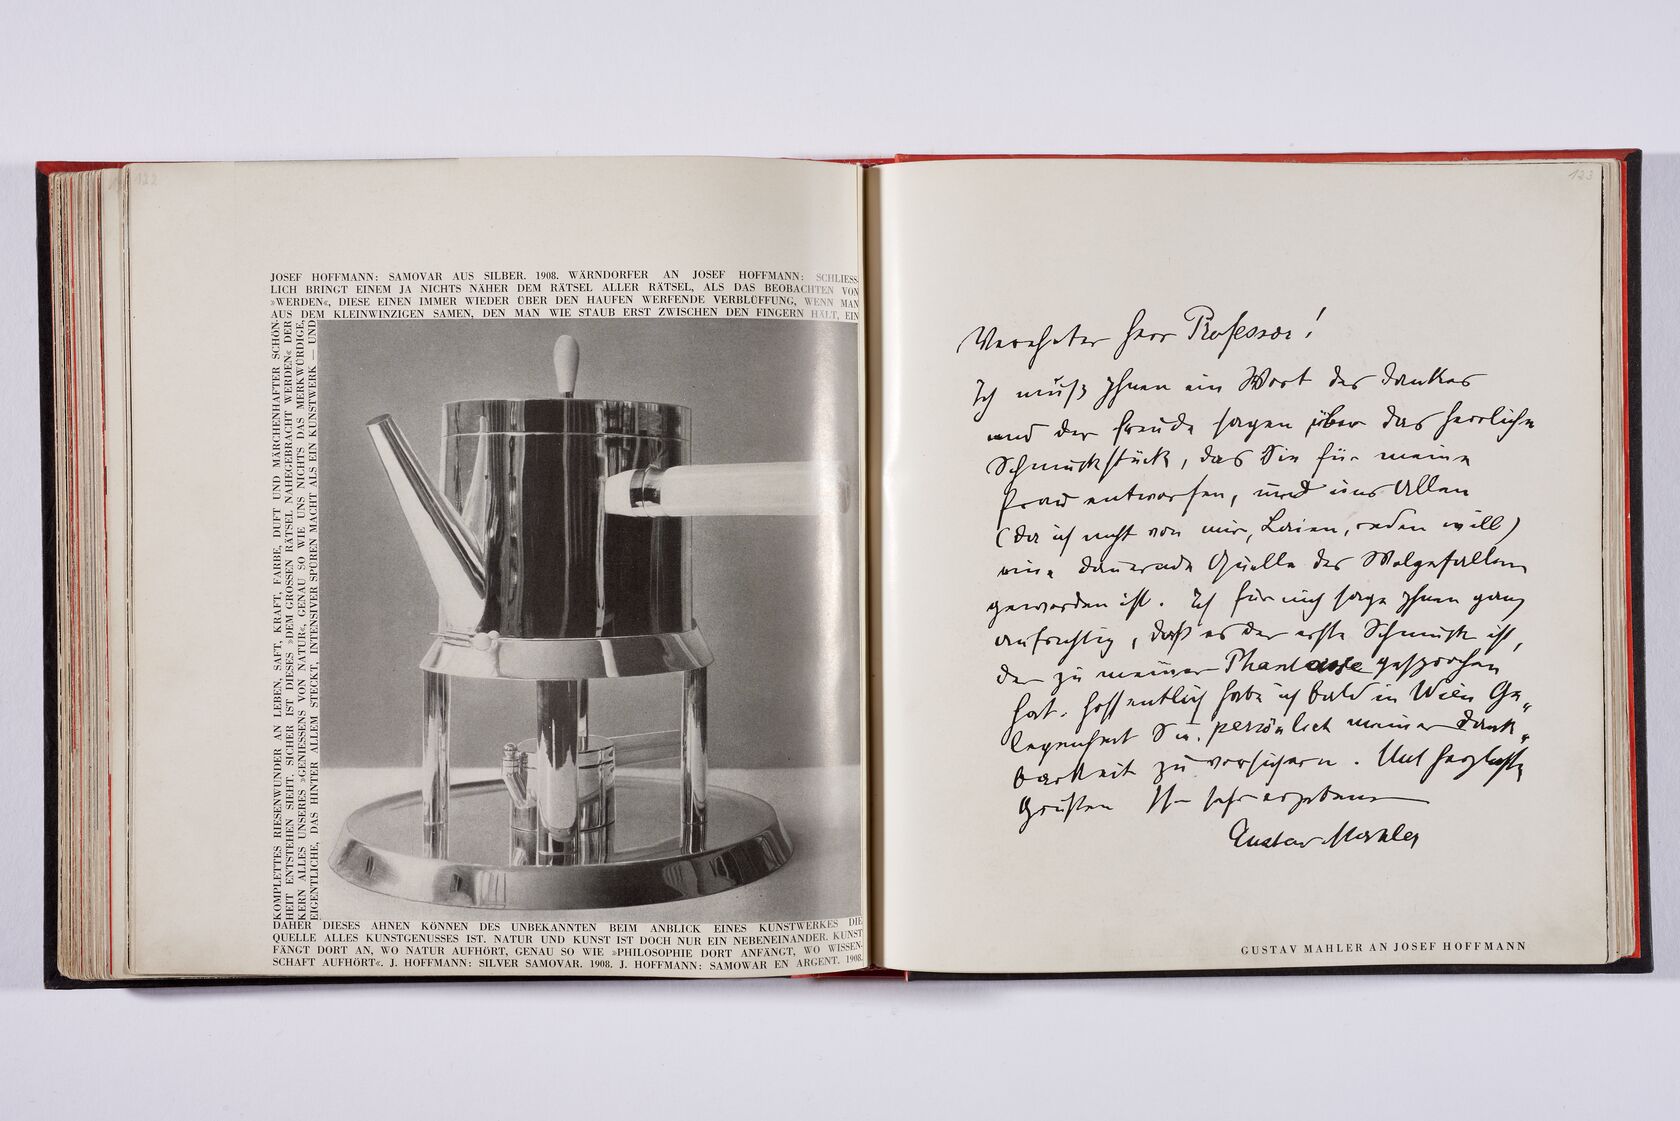 122
JOSEF HOFFMANN: SAMOVAR AUS SILBER. 1908. WÄRNDORFER AN JOSEF HOFFMANN: SCHLIESS-
LICH BRINGT EINEM JA NICHTS NÄHER DEM RÄTSEL ALLER RÄTSEL, ALS DAS BEOBACHTEN VON
»WERDEN«, DIESE EINEN IMMER WIEDER ÜBER DEN HAUFEN WERFENDE VERBLÜFFUNG, WENN MAN
AUS DEM KLEINWINZIGEN SAMEN, DEN MAN WIE STAUB ERST ZWISCHEN DEN FINGERN HÄLT, EIN
KOMPLETTES RIESENWUNDER AN LEBEN, SAFT, KRAFT, FARBE, DUFT UND MÄRCHENHAFTER SCHÖN-
HEIT ENTSTEHEN SIEHT. SICHER IST DIESES »DEM GROSSEN RÄTSEL NAHEGEBRACHT WERDEN« DER
KERN ALLES UNSERES »GENIESSENS VON NATUR«, GENAU SO WIE UNS NICHTS DAS MERKWÜRDIGE,
EIGENTLICHE, DAS HINTER ALLEM STECKT, INTENSIVER SPÜREN MACHT ALS EIN KUNSTWERK — UND
DAHER DIESES AHNEN KÖNNEN DES UNBEKANNTEN BEIM ANBLICK EINES KUNSTWERKES DIE
QUELLE ALLES KUNSTGENUSSES IST. NATUR UND KUNST IST DOCH NUR EIN NEBENEINANDER. KUNST
FÄNGT DORT AN, WO NATUR AUFHÖRT, GENAU SO WIE »PHILOSOPHIE DORT ANFÄNGT, WO WISSEN-
SCHAFT AUFHÖRT«. J. HOFFMANN: SILVER SAMOVAR. 1908. J. HOFFMANN: SAMOWAR EN ARGENT. 1908.
123
Verehrter Herr Professor!
Ich muß Ihnen ein Wort des Dankes
und der Freude sagen über das herrliche
Schmuckstück, das Sie für meine
Frau entworfen, und uns Allen
(da ich nicht von mir, Laien, reden will)
eine dauernde Quelle des Wolgefallens
geworden ist. Ich für mich sage Ihnen ganz
aufrichtig, daß es der erste Schmuck ist,
der zu meiner Phantasie gesprochen
hat. Hoffentlich habe ich bald in Wien Ge-
legenheit Sie persönlich meiner Dank-
barkeit zu versichern. Mit herzlichsten
Grüßen Ihr sehr ergebener
Gustav Mahler
GUSTAV MAHLER AN JOSEF HOFFMANN